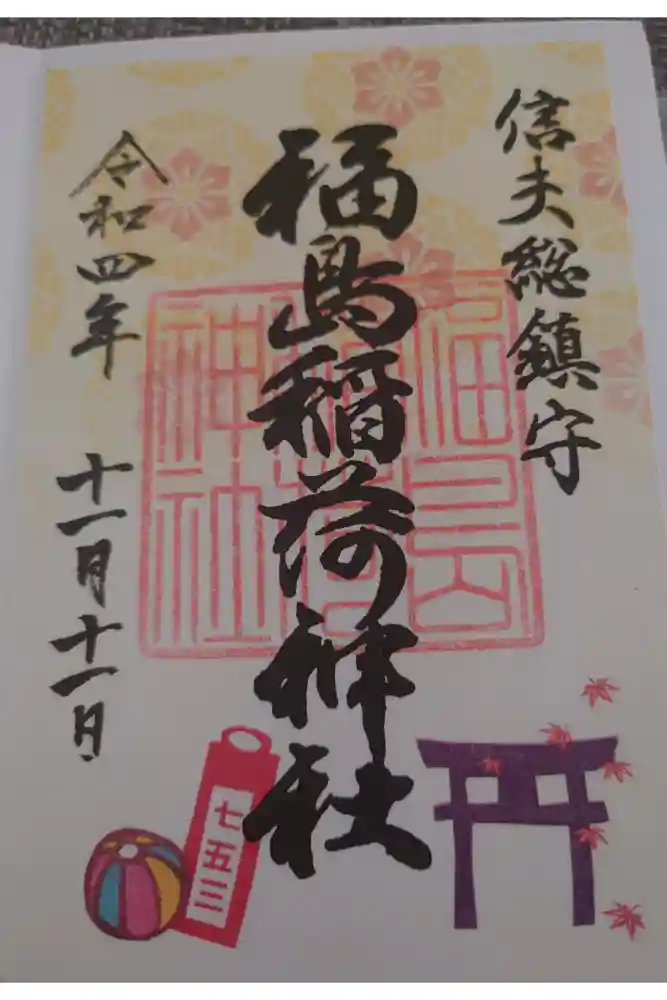 信夫総鎮守
福島稲荷神社
福島
稲荷
神社
令和四年 十一月十一日
七五三